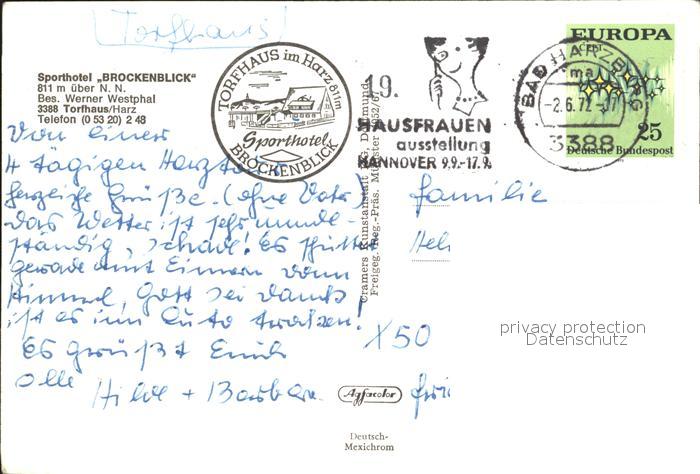 [Torfhaus]
Sporthotel „BROCKENBLICK"
811 m über N. N.
Bes. Werner Westphal
3388 Torfhaus/Harz
Telefon (0 53 20) 2 48
TORFHAUS im Harz 811m
Sporthotel
BROCKENBLICK
19.
HAUSFRAUEN
ausstellung
HANNOVER 9.9.-17.9.
BAD HARZBURG
ma
-2.6.72.-17
3388
EUROPA
CEPT
25
Deutsche Bundespost
Von einer
4 tägigen Harztour
herzliche Grüße. (ohne Vater
das Wetter ist sehr
schade! Es schüttet
gerade mit Eimern vom
Himmel, Gott sei Dank
ist es im Auto trocken!
Es grüßt Euch
Alle Hilde + Barbara
Familie
X50
Cramers Kunstanstalt KG, Dortmund
Freigeg. Reg.-Präs. Münster
Agfacolor
Deutsch-
Mexichrom
privacy protection
Datenschutz